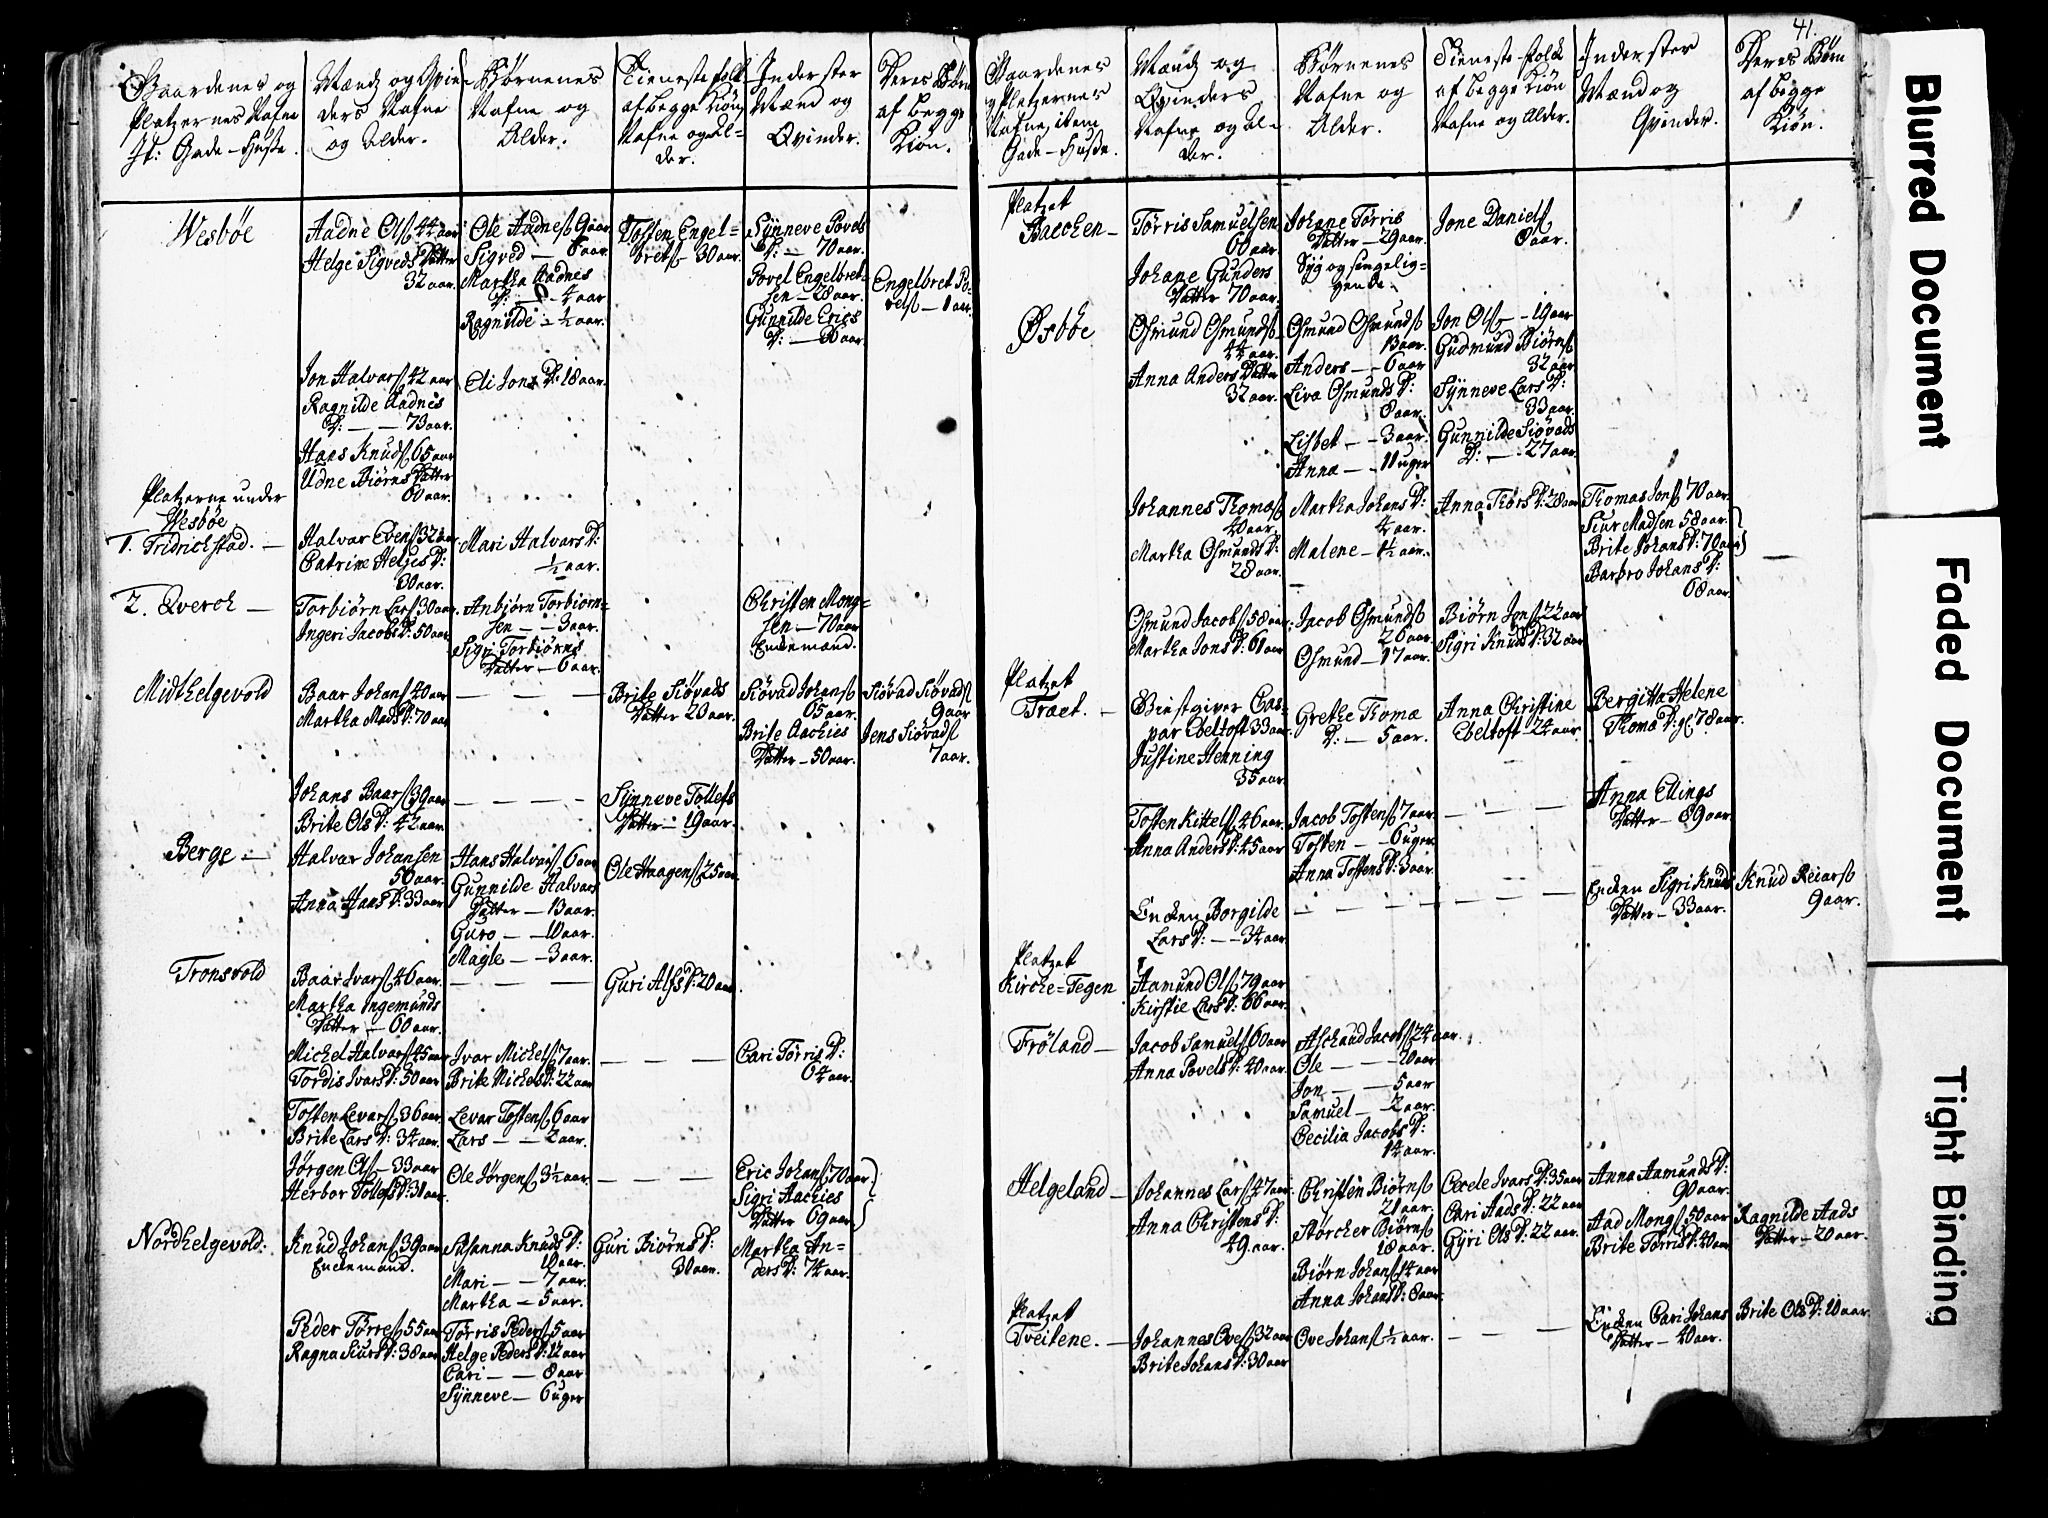 Gaardenes og
Platzernes Nafne
It: Gade-Huuse.
Mænds og Qvin-
ders Nafne
og Alder.
Børnenes
Nafne og
Alder.
Tieneste folk
af begge Kiøn
Nafne og Al-
der.
Inderster
Mænd og
Qvinder.
Deres Børn
af begge
Kiøn.
Wesbøe
Aadne Ols. 44 aar
Helge Sigveds Datter
32 aar.
Ole Aadnes. 9 aar
Sigved — 8 aar.
Martha Aadnes
D: — 4 aar
Ragnilde — ½ aar.
Tosten Engel=
brets. 30 aar.
Synneve Povels
D: — 70 aar.
Povel Engelbret-
sen — 28 aar.
Gunnilde Erics
D: — 30 aar.
Engelbret Po-
vels. — 1 aar.
Jon Halvars. 42 aar
Ragnilde Aadnes
D: — — 73 aar.
Eli Jons D: 18 aar.
Hans Knuds. 65 aar
Udne Biørns Datter
60 aar.
Platzerne under
Wesbøe
1. Fridrichstad. —
Halvar Evens. 32 aar.
Catrine Helges D:
30 aar.
Mari Halvars D:
½ aar.
2. Qverch —
Torbiørn Lars. 30 aar.
Ingeri Jacobs D: 50 aar
Anbiørn Torbiorn=
sen — — 3 aar.
Sigri Torbiørns
Datter — 6 aar.
Christen Mong=
sen — 70 aar
Enckemand.
Midthelgevold
Baar Johans. 40 aar
Martha Mads D: 70 aar
— — — —
Brite Siøvads
Datter 23 aar.
Siøvad Johans.
65 aar.
Brite Aachies
Datter — 50 aar.
Siøvad Siøvads.
9 aar
Jens Siøvads.
7 aar.
Johans Baars. 39 aar
Brite Ols D: 42 aar
— — — —
Synneve Tollefs
Datter — 19 aar.
Berge —
Halvar Johansen
50 aar.
Anna Hans D: 33 aar
Hans Halvars. 6 aar
Gunnilde Halvars
Datter — 13 aar.
Guro — — 10 aar.
Magle — — 3 aar.
Ole Haagens. 25 aar.
Tronsvold
Baar Ivars. 46 aar.
Martha Ingemunds
Datter — 60 aar.
— — — —
Guri Alfs D: 20 aar
Michel Halvars. 45 aar
Tordis Ivars D: 50 aar
Ivar Michels. 7 aar.
Brite Michels D: 22 aar
— — —
Cari Torris D:
64 aar.
Tosten Levars. 36 aar
Brite Lars D: 34 aar.
Levar Tostens. 6 aar
Lars — — 2 aar.
Jørgen Ols. — 33 aar
Herbor Tollefs D: 31 aar.
Ole Jørgens. 3½ aar
— — — —
Eric Johans. 70 aar
Sigri Aachies
Datter 69 aar
Nordhelgevold:
Knud Johans. 39 aar
Enckemand.
Susanna Knuds D:
10 aar.
Mari — — 7 aar.
Martha — 5 aar.
Guri Biørns D:
30 aar.
Martha An=
ders D: 74 aar.
Peder Torres. 55 aar
Ragna Siurs D: 38 aar
Torris Peders. 5 aar
Helge Peders D: 12 aar
Cari — — 8 aar
Synneve — 6 uger
41.
Gaardenes
og Platzernes
Nafne, item
Gade-Huuse.
Mænds og
Qvinders
Nafne og Al-
der.
Børnenes
Nafne og
Alder.
Tieneste-folck
af begge Kiøn
Nafne og Alder.
Inderster
Mænd og
Qvinder.
Deres Børn
af begge
Kiøn.
Platzet
Bacchen —
Tørris Samuelsen
60 aar.
Johane Gunders
Datter 70 aar.
Johane Torris
Datter — 29 aar.
Syg og sengelig=
gende.
Jone Daniels.
8 aar.
Øsbøe
Osmund Osmunds.
44 aar.
Anna Anders Datter
32 aar.
Osmund Osmunds.
13 aar.
Anders — 6 aar
Liva Osmunds D:
8 aar.
Lisbet — — 3 aar.
Anna — — 11 uger
Jon Ols. — — 19 aar
Gudmund Biørns.
32 aar
Synneve Lars D:
33 aar.
Gunnilde Siøvads
D: — — 27 aar.
Johannes Thomas.
40 aar.
Martha Osmunds D:
28 aar.
Martha Johans D:
4 aar.
Malene — 1½ aar.
Anna Tiørs D: 28 aar
Thomas Jons. 70 aar.
Siur Madsen 58 aar.
Brite Johans D: 70 aar
Barbro Johans D:
68 aar.
Osmund Jacobs. 58 aar.
Martha Jons D: 61 aar
Jacob Osmunds.
26 aar.
Osmund — 17 aar.
Biørn Jons. 22 aar
Sigri Knuds D: 32 aar
Platzet
Træet. —
Giestgiver Cas=
par Ebeltoft 33 aar.
Justine Henning
35 aar.
Grethe Thomæ
D: — 5 aar.
Anna Christine
Ebeltoft — 24 aar.
Bergitta Helene
Thomæ D: gl. 78 aar.
Tosten Kittels. 46 aar.
Anna Anders D: 45 aar
Jacob Tostens. 7 aar.
Tosten — — 6 uger.
Anna Tostens D: 3 aar.
— — —
Anna Ellings
Datter — 89 aar.
Encken Borgilde
Lars D: — — 34 aar.
— — — — — — —
Encken Sigri Knuds
Datter — 33 aar.
Knud Reiars.
9 aar.
Platzet
Kirche=Tegen
Aamund Ols. 79 aar
Kirstie Lars D: 66 aar.
Frøland —
Jacob Samuels. 60 aar
Anna Povels D: 40 aar.
Aschaud Jacobs. 24 aar.
Ole — — 20 aar.
Jon — — — 5 aar
Samuel — 2 aar.
Cecilia Jacobs D:
14 aar.
Helgeland —
Johannes Lars. 47 aar
Anna Christens D:
49 aar.
Christen Biørns.
21 aar.
Storcker Biørns.
18 aar.
Biørn Johans. 14 aar
Anna Johans D: 8 aar.
Cecele Ivars D: 35 aar
Cari Aads D: 22 aar
Gyri Ols D: 22 aar.
Anna Aamunds D:
90 aar.
Aad Mongs. 50 aar
Brite Torris D: 40 aar
Ragnilde Aads
Datter — 20 aar.
Platzet
Tveitene. —
Johannes Oves. 32 aar
Brite Johans D: 30 aar
Ove Johans. ½ aar.
— — —
Encken Cari Johans
Datter — 40 aar.
Brite Ols D: 10 aar.
Blurred Document
Faded Document
Tight Binding